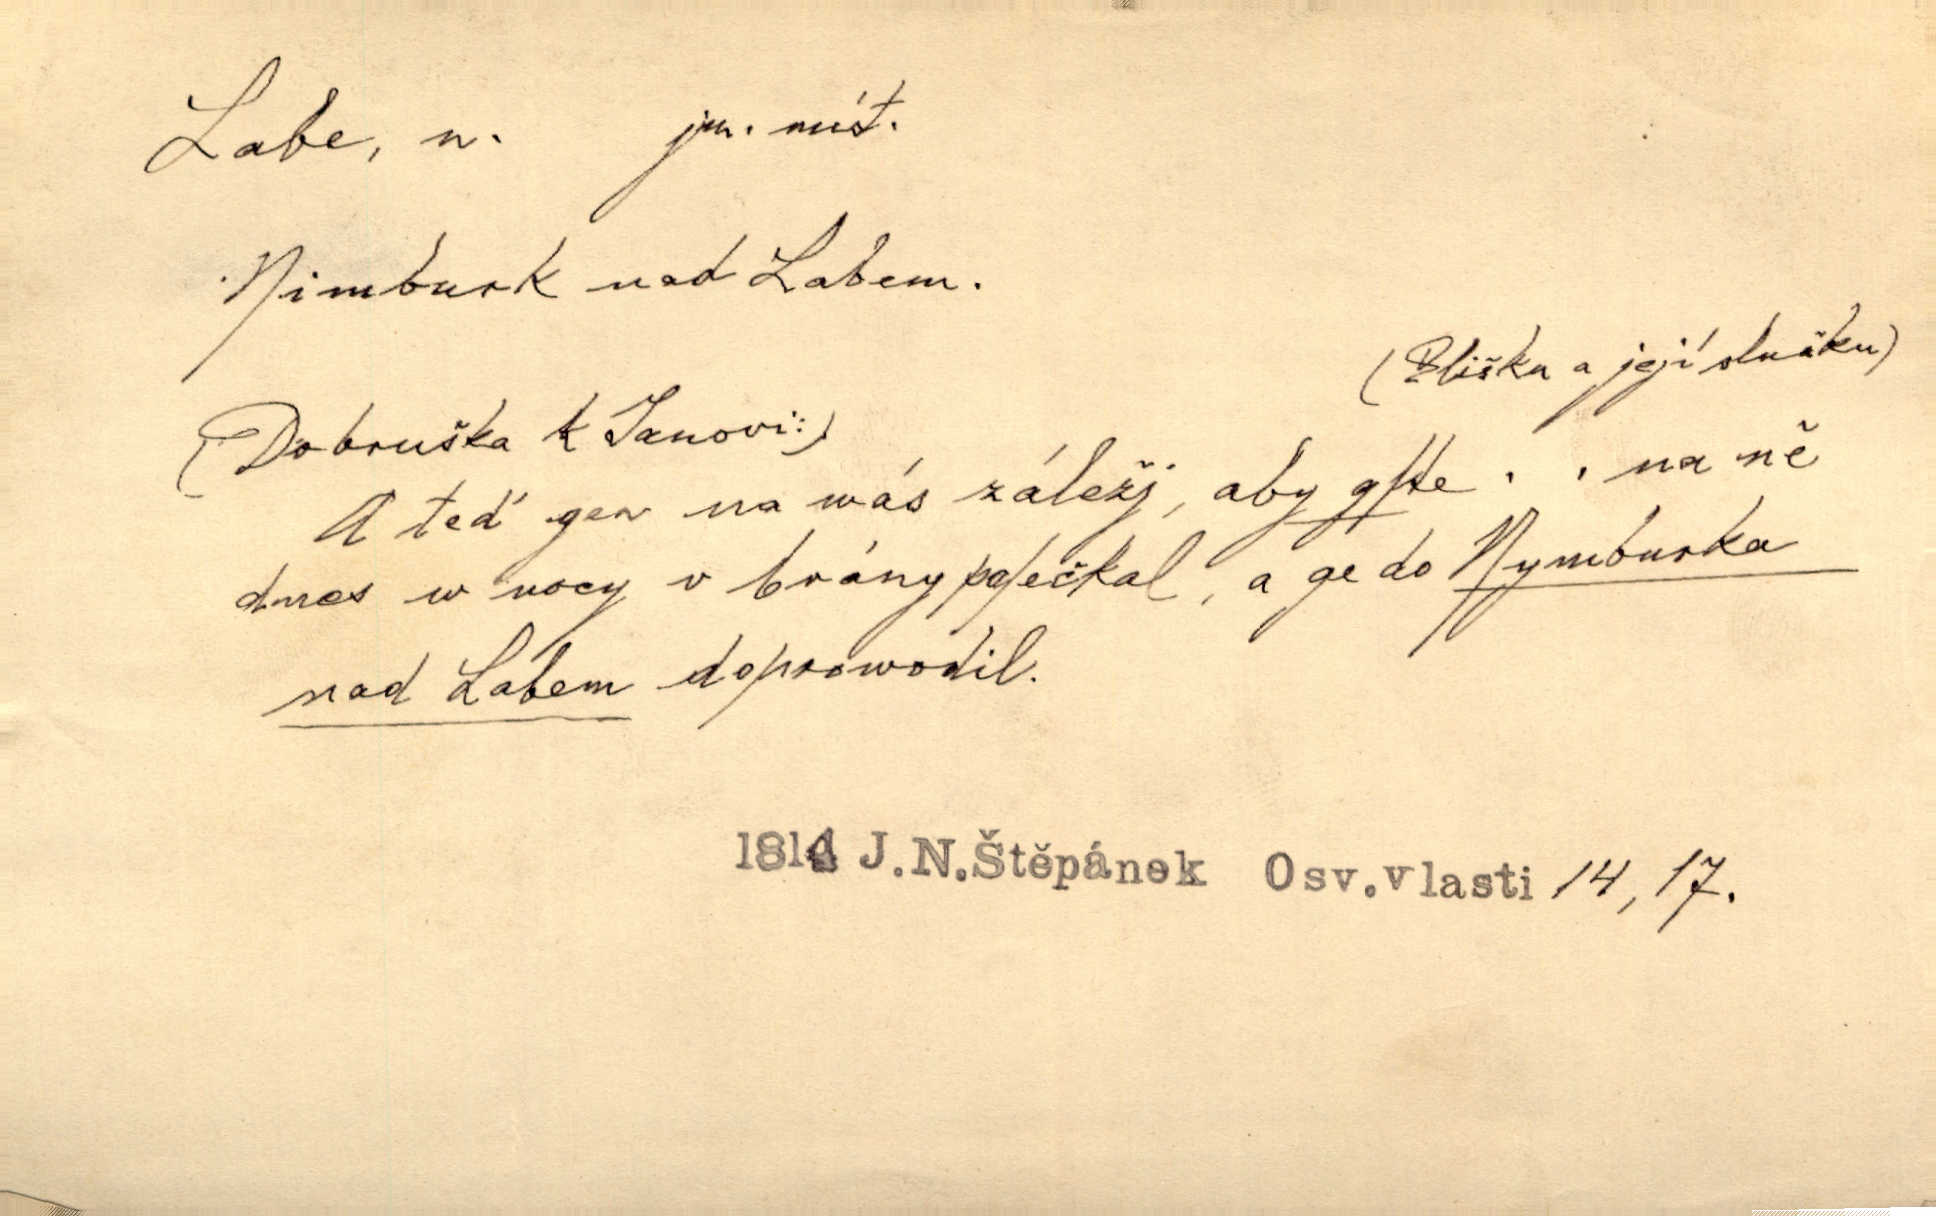 Labe, n. jm. míst.
Nimburk nad Labem.
(Elišku a její služku)
(Dobruška k Janovi:)
A teď gen na wás záležj, aby gſte . . na ně
dnes w nocy v brány poſečkal, a ge do Nymburka
nad Labem doprowodil.
1814 J.N.Štěpánek Osv.vlasti 14, 17.